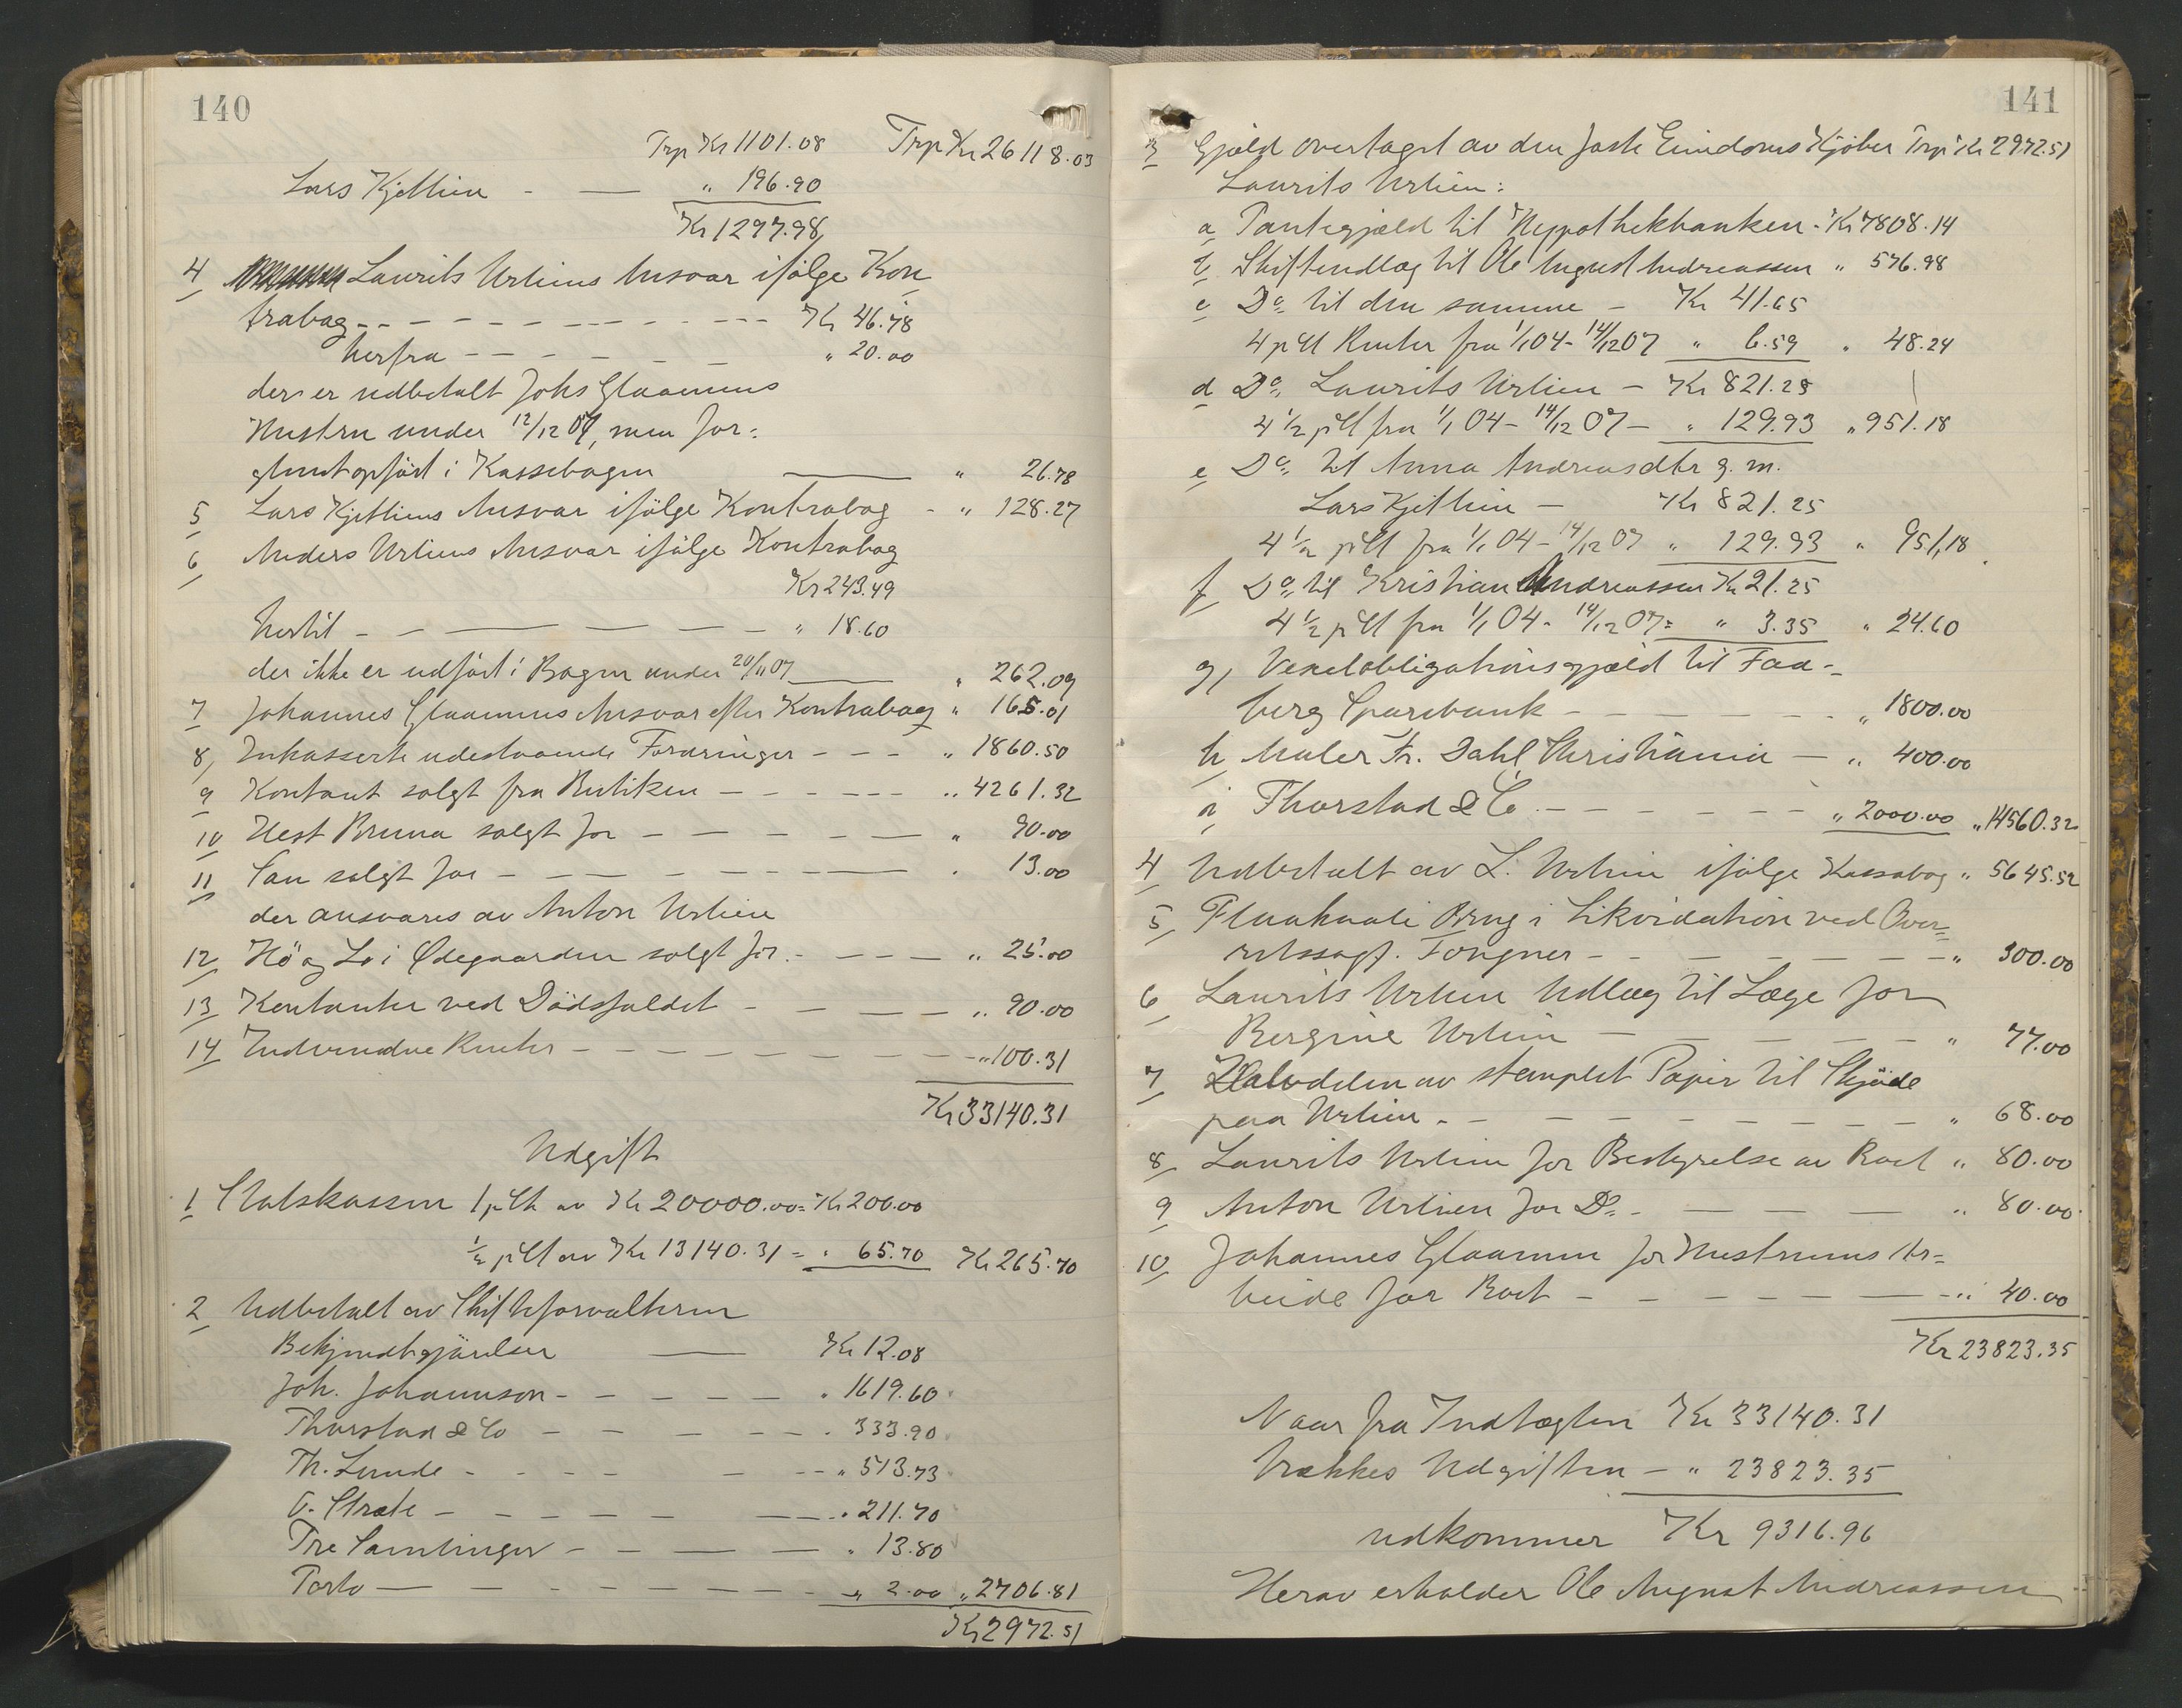 140
Trp Kr 1101.08 Trp Kr 26118.03
Lars Kjetlien - — " 196.90
Kr 1297.98
4 Laurits Urliens Ansvar ifölge Kon
trabog - - - - - - - Kr 46.78
herfra - - - - - " 20.00
der er udbetalt Johs Glaamens
Hustru under 12/12 07, men for-
glemt opfört i Kassebogen — " 26.78
5 Lars Kjetliens Ansvar ifölge Kontrabog - " 128.27
6 Anders Urliens Ansvar ifölge Kontrabog
Kr 243.49
hertil - - — — — - " 18.60
der ikke er udfört i Bogen under 20/11 07 — " 262.09
7 Johannes Glaamens Ansvar efter Kontrabog " 165.01
8, Inkasserte udestaaende Fordringer - - - " 1860.50
9 Kontant solgt fra Butiken - - - - - " 4261.32
10 Hest Bruna solgt for - - - - - " 90.00
11 Sau solgt for - - - - - - " 13.00
der ansvares av Anton Urlien
12 Hö og Lo i Ødegaarden solgt for - - - - " 25.00
13 Kontanter ved Dödsfaldet - - - - " 90.00
14 Indvundne Renter - - - - - - - " 100.31
Kr 33140.31
Udgift
1 Statskassen 1 pCt av Kr 20000.00 = Kr 200.00
1/2 pCt av Kr 13140.31 = " 65.70 Kr 265.70
2 Udbetalt av Skifteforvalteren
Bekjendtgjörelser — Kr 12.08
Joh. Johannson - - - - - " 1619.60
Thorstad & Co - - - - - " 333.90
Th. Lunde - - - - - - " 513.73
O. Stræte - - - - - - " 211.70
Tre Samlinger - - - - " 13.80
Porto — - - - - - " 2.00 " 2706.81
Kr 2972.51
141
3 Gjæld overtaget av den faste Eiendoms Kjöber Trp Kr 2972.51
Laurits Urlien:
a Pantegjæld til Hypothekbanken - Kr 7808.14
b, Skifteudlæg til Ole August Andreassen " 576.98
c Do til den samme - Kr 41.65
4 pCt Renter fra 1/1 04 - 14/12 07 " 6.59 " 48.24
d Do, Laurits Urlien - Kr 821.25
4 1/2 pCt fra 1/1 04 - 14/12 07 - " 129.93 " 951.18
e Do til Anna Andreasdtr g. m.
Lars Kjetlien - Kr 821.25
4 1/2 pCt fra 1/1 04 - 14/12 07 " 129.93 " 951,18
f Do til Kristian Andreassen Kr 21.25
4 1/2 pCt fra 1/1 04 - 14/12 07 = " 3.35 " 24.60
g, Vexelobligationsgjæld til Faa-
berg Sparebank - - - - - - " 1800.00
h Maler Fr. Dahl Christiania — " 400.00
i, Thorstad & Co - - - - - - " 2000.00 " 14560.32
4 Udbetalt av L. Urlien ifölge Kassabog " 5645.52
5 Brug i Likvidation ved Over-
retssagf. Fougner - - - - - - " 300.00
6 Laurits Urlien Udlæg til Læge for
Bergine Urlien — - - - - " 77.00
7 Halvdelen av stemplet Papir til Skjöde
paa Urlien - - - - - - - " 68.00
8 Laurits Urlien for Bestyrelse av Boet " 80.00
9 Anton Urlien for Do - — — — " 80.00
10 Johannes Glaamen for Hustruens Ar-
beide for Boet - - - - - - " 40.00
Kr 23823.35
Naar fra Indtægten Kr 33140.31
trækkes Udgiften - " 23823.35
udkommer Kr 9316.96
Herav erholder Ole August Andreassen